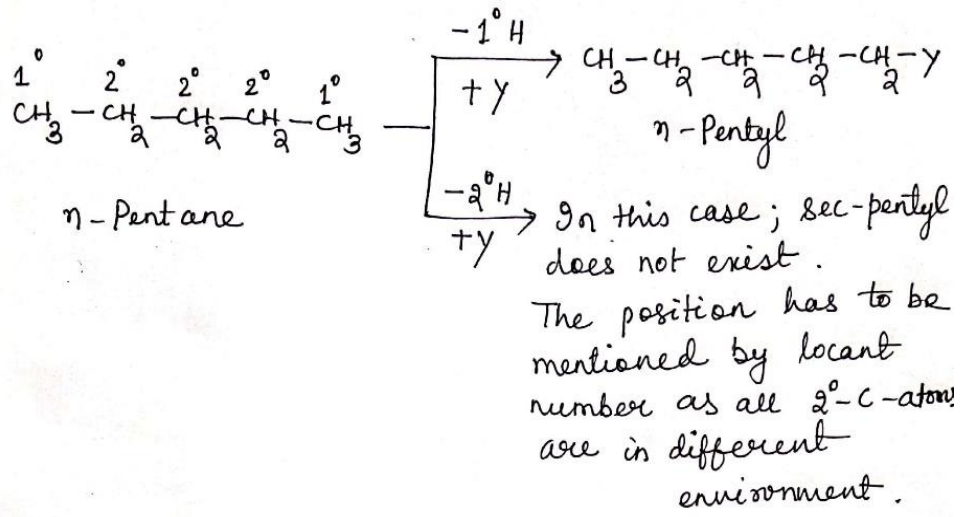 1° 2° 2° 2° 1°
CH3 – CH2 – CH2 – CH2 – CH3
n-Pentane
-1°H
+Y
CH3 – CH2 – CH2 – CH2 – CH2 – Y
n-Pentyl
-2°H
+Y
In this case; sec-pentyl
does not exist.
The position has to be
mentioned by locant
number as all 2°-C-atoms
are in different
environment.